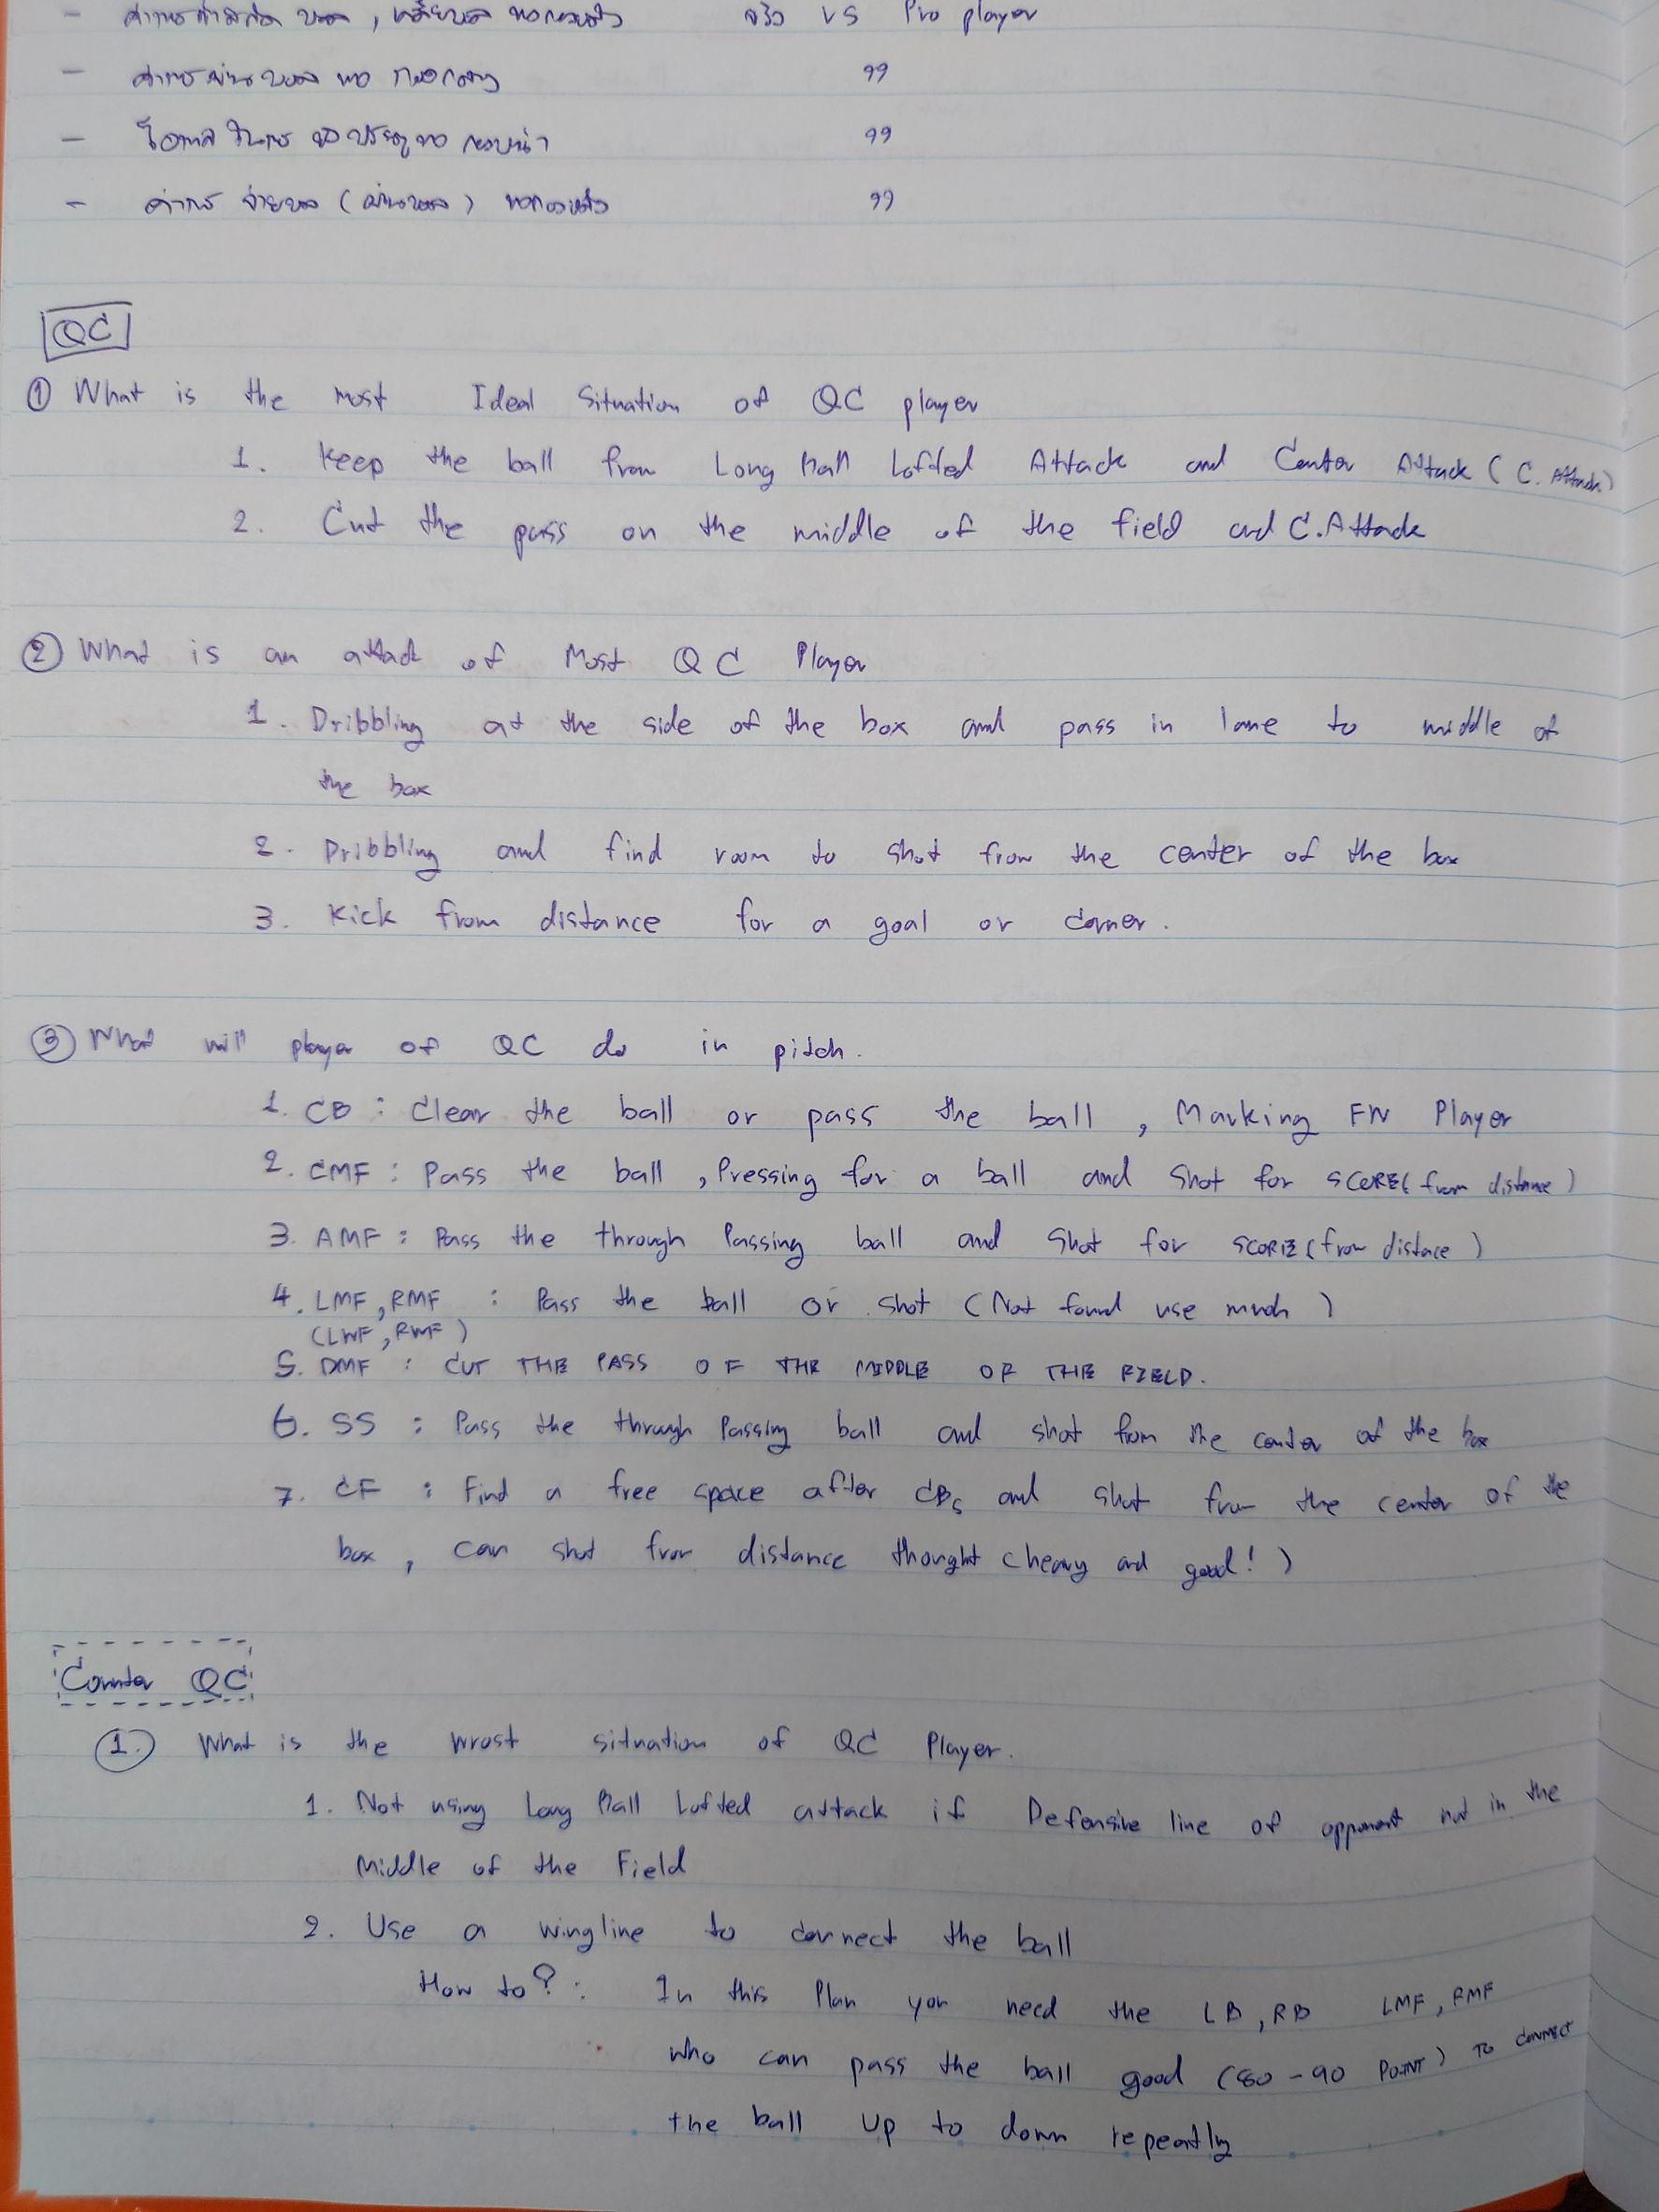 - ค่าการสกัดบอล, เคลียบอล ของกองหลัง จริง vs Pro player
- ค่าการผ่านบอล ของ กองกลาง 99
- โอกาส ในการ ยิงประตูของ กองหน้า 99
- ค่าการ จ่ายบอล (ผ่านบอล) ของกองหลัง 99
QC
① What is the most Ideal Situation of QC player
1. Keep the ball from Long Ball Lofted Attack and Center Attack (C. Attack)
2. Cut the pass on the middle of the field and C.Attack
② What is an attack of Most QC Player
1. Dribbling at the side of the box and pass in lane to middle of
the box
2. Dribbling and find room to shot from the center of the box
3. Kick from distance for a goal or corner.
③ What will player of QC do in pitch.
1. CB : Clear the ball or pass the ball , Marking FW Player
2. CMF : Pass the ball , Pressing for a ball and Shot for SCORE (from distance)
3. AMF : Pass the through Passing ball and Shot for SCORE (from distace)
4. LMF, RMF : Pass the ball or shot (Not found use much)
(LWF, RWF)
5. DMF : CUT THE PASS OF THE MIDDLE OF THE FIELD.
6. SS : Pass the through Passing ball and shot from the center of the box
7. CF : Find a free space after CBs and shot from the center of the
box , can shot from distance thought cheavy and good! )
Counter QC
①. What is the wrost situation of QC Player.
1. Not using Long Ball Lofted attack if Defensive line of opponent not in the
Middle of the Field
2. Use a wingline to connect the ball
How to? : In this Plan you need the LB, RB LMF, RMF
who can pass the ball good (80 - 90 POINT) TO CONNECT
the ball up to down repeatly